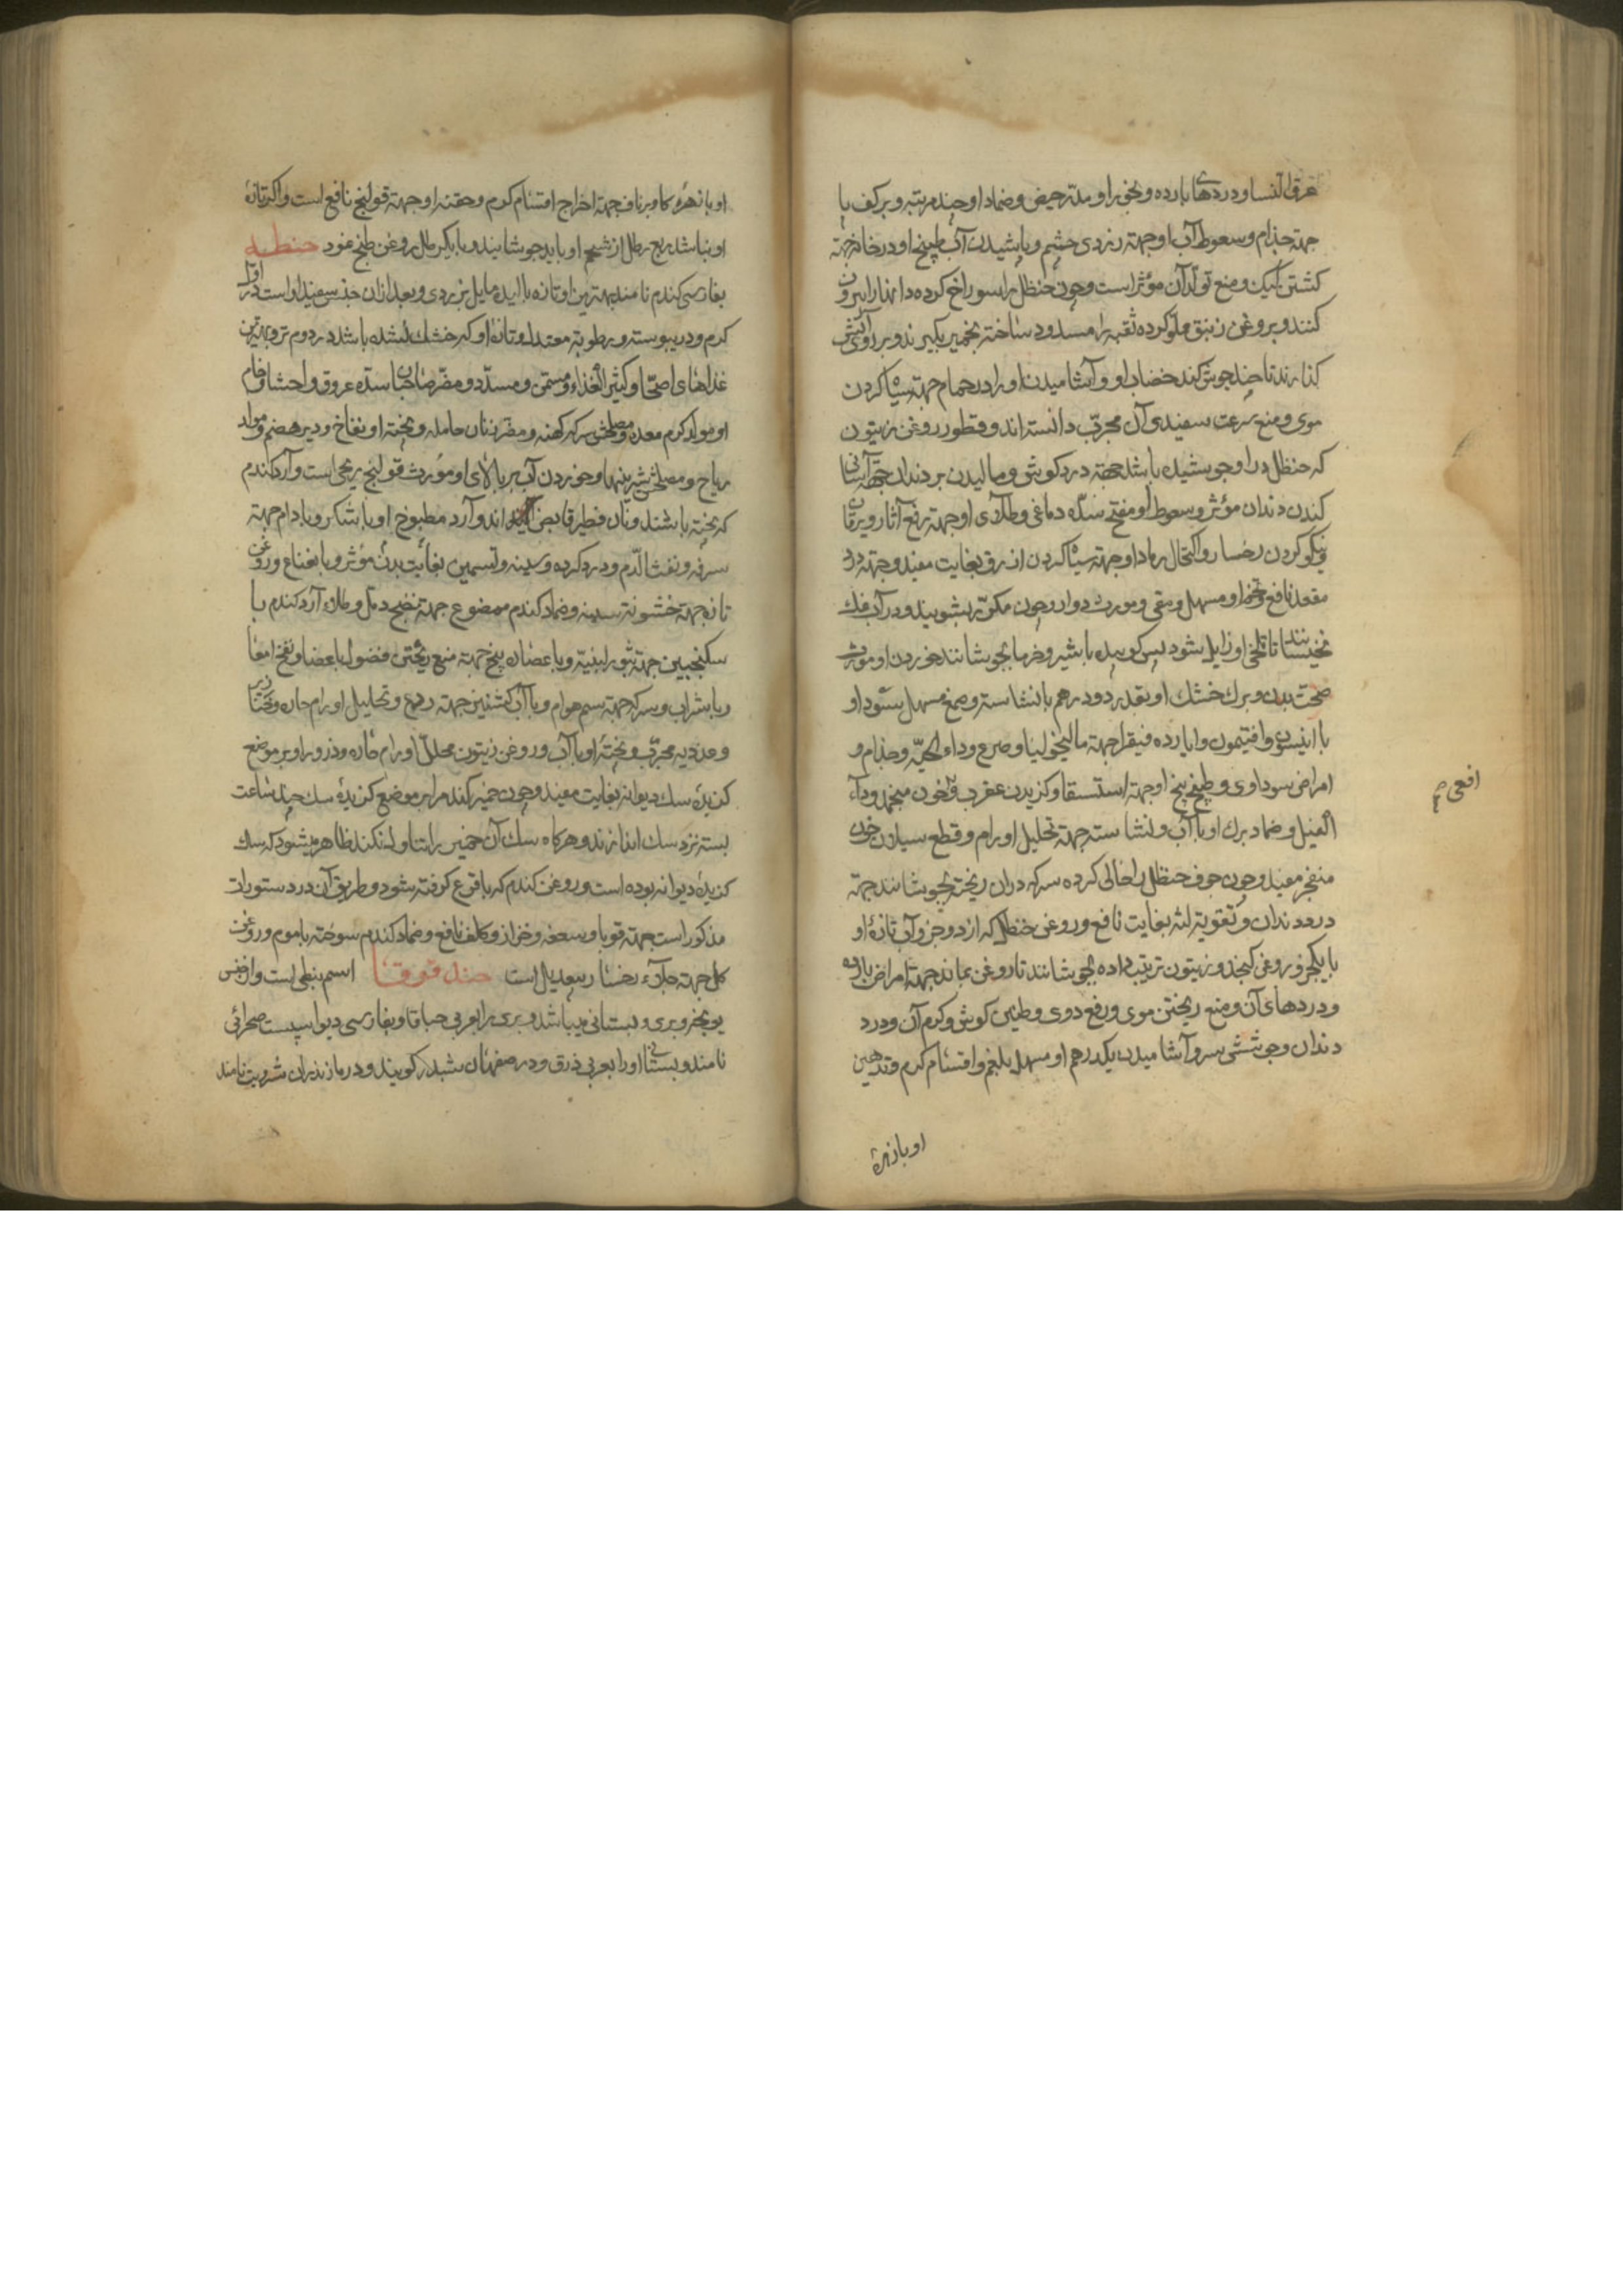 عرق النسا و دردهای بارده و بخور او مدر حیض و ضماد او چند مرتبه بر کف پا
جهته جذام و سعوط آب او جهته زردی چشم و پاشیدن آب طبیخ او در خانه جهته
کشتن کیک و منع تولد آن مؤثر است و چون حنظل را سوراخ کرده دانها را بیرون
کنند و بروغن زنبق مملو کرده ثقبه را مسدود ساخته بخمیر بگیرند و بر روی آتش
گذارند تا چند جوش کند خضاب او و آشامیدن او را در حمام جهته سیاه کردن
موی و منع سرعت سفیدی آن مجرب دانسته اند و قطور روغن زیتون
که حنظل در او جوشیده باشد جهته درد گوش و مالیدن بر دندان جهته آسانی
کندن دندان مؤثر و سعوط او مفتح سده دماغی و طلای او جهته رفع آثار و یرقان
و نیکو کردن رخسار و اکتحال رماد او جهته سیاه کردن ازرق بغایت مفید و جهته درد
مقعد نافع و تخم او مسهل و مقی و مورث دوار و چون مکرر بشویند و در آب نمک
بخیسانند تا تلخی او زایل شود پس کوبیده با شیر و خرما بجوشانند خوردن او مورث
صحت بدن و برک خشک او بقدر دو درهم با نشاسته و صمغ مسهل سودا و
با انیسون و افتیمون و ایارده فیقرا جهته مالیخولیا و صرع و داء الحیه و جذام و
امراض سوداوی و طبیخ بیخ او جهته استسقا و گزیدن عقرب و خون منجمد و داء
افعی صح
الفیل و ضماد برک او با آب و نشاسته جهته تحلیل اورام و قطع سیلان خون
منفجر مفید و چون جوف حنظل را خالی کرده سرکه در ان ریخته بجوشانند جهته
درد دندان و تقویة لثه بغایت نافع و روغن حنظل که از دو جزو آب تازه او
با یکجزو روغن کنجد و زیتون ترتیب داده بجوشانند تا روغن بماند جهته امراض بارده
و دردهای آن و منع ریختن موی و رفع دوی و طنین گوش و کرم آن و درد
دندان و جوششی سر و آشامیدن یکدرهم او مسهل بلغم و اقسام کرم و تدهین
او با زهرهٔ
او با زهرهٔ کاو بر ناف جهته اخراج اقسام کرم و حقنه او جهته قولنج نافع است و اگر تازهٔ
او نباشد ربع رطل از شحم او باید جوشانید و با یکرطل روغن طبخ نمود حنطه
بفارسی گندم نامند بهترین او تازه بالیده مایل بزردی و بعد از ان سفید او است در اول
گرم و در یبوسته و رطوبة معتدل و تازهٔ او که خشک نشده باشد در دوم تر و بهترین
غذاهای اصحا و کثیر الغذاء و مسمن و مسدد و مضر صاحبان سده عروق و احشا و خام
او مولد کرم معده و مصلحش سرکه کهنه و مضر زنان حامله و پخته او نفاخ و دیر هضم و مولد
ریاح و مصلحش شیرینیها و خوردن آب بر بالای او مورث قولنج ریحی است و آرد گندم
که پخته باشند و نان فطیر قابض اند و آرد مطبوخ او با شکر و بادام جهته
سرفه و نفث الدم و درد گرده و سینه و تسمین بغایت مؤثر و با نعناع و روغن
تازه جهته خشونة سینه و ضماد گندم ممضوغ جهته نضج دمل و طلاء آرد گندم با
سکنجبین جهته بثور لبنیه و با عصاره بنج جهته منع ریختن فضول باعضا و نفخ امعا
و با شراب و سرکه جهته سم هوام و با آب کشنیز جهته ردع و تحلیل اورام حاره و خنازیر
و غددیه مجرب و پختهٔ او با آب و روغن زیتون محلل اورام حاره و ذرور او بر موضع
گزیدهٔ سک دیوانه بغایت مفید و چون خمیر گندم را بر موضع گزیدهٔ سک چند ساعت
بسته نزد سک اندازند و هرگاه سک آن خمیر را تناول نکند ظاهر میشود که سک
گزیده دیوانه بوده است و روغن گندم که با قرع گرفته شود و طریق آن در دستورات
مذکور است جهته قوبا و سعفه و حزاز و کلف نافع و ضماد گندم سوخته با موم و روغن
گل جهته جلاء رخسار بیعدیل است حندقوقا اسم نبطی است و از جنس
یونجه و بری و بستانی میباشد و بری را بعربی حباقا و بفارسی دیو اسپست صحرائی
نامند و بستانی او را بعربی ذرق و در اصفهان شبدر گویند و در مازندران شرویت نامند